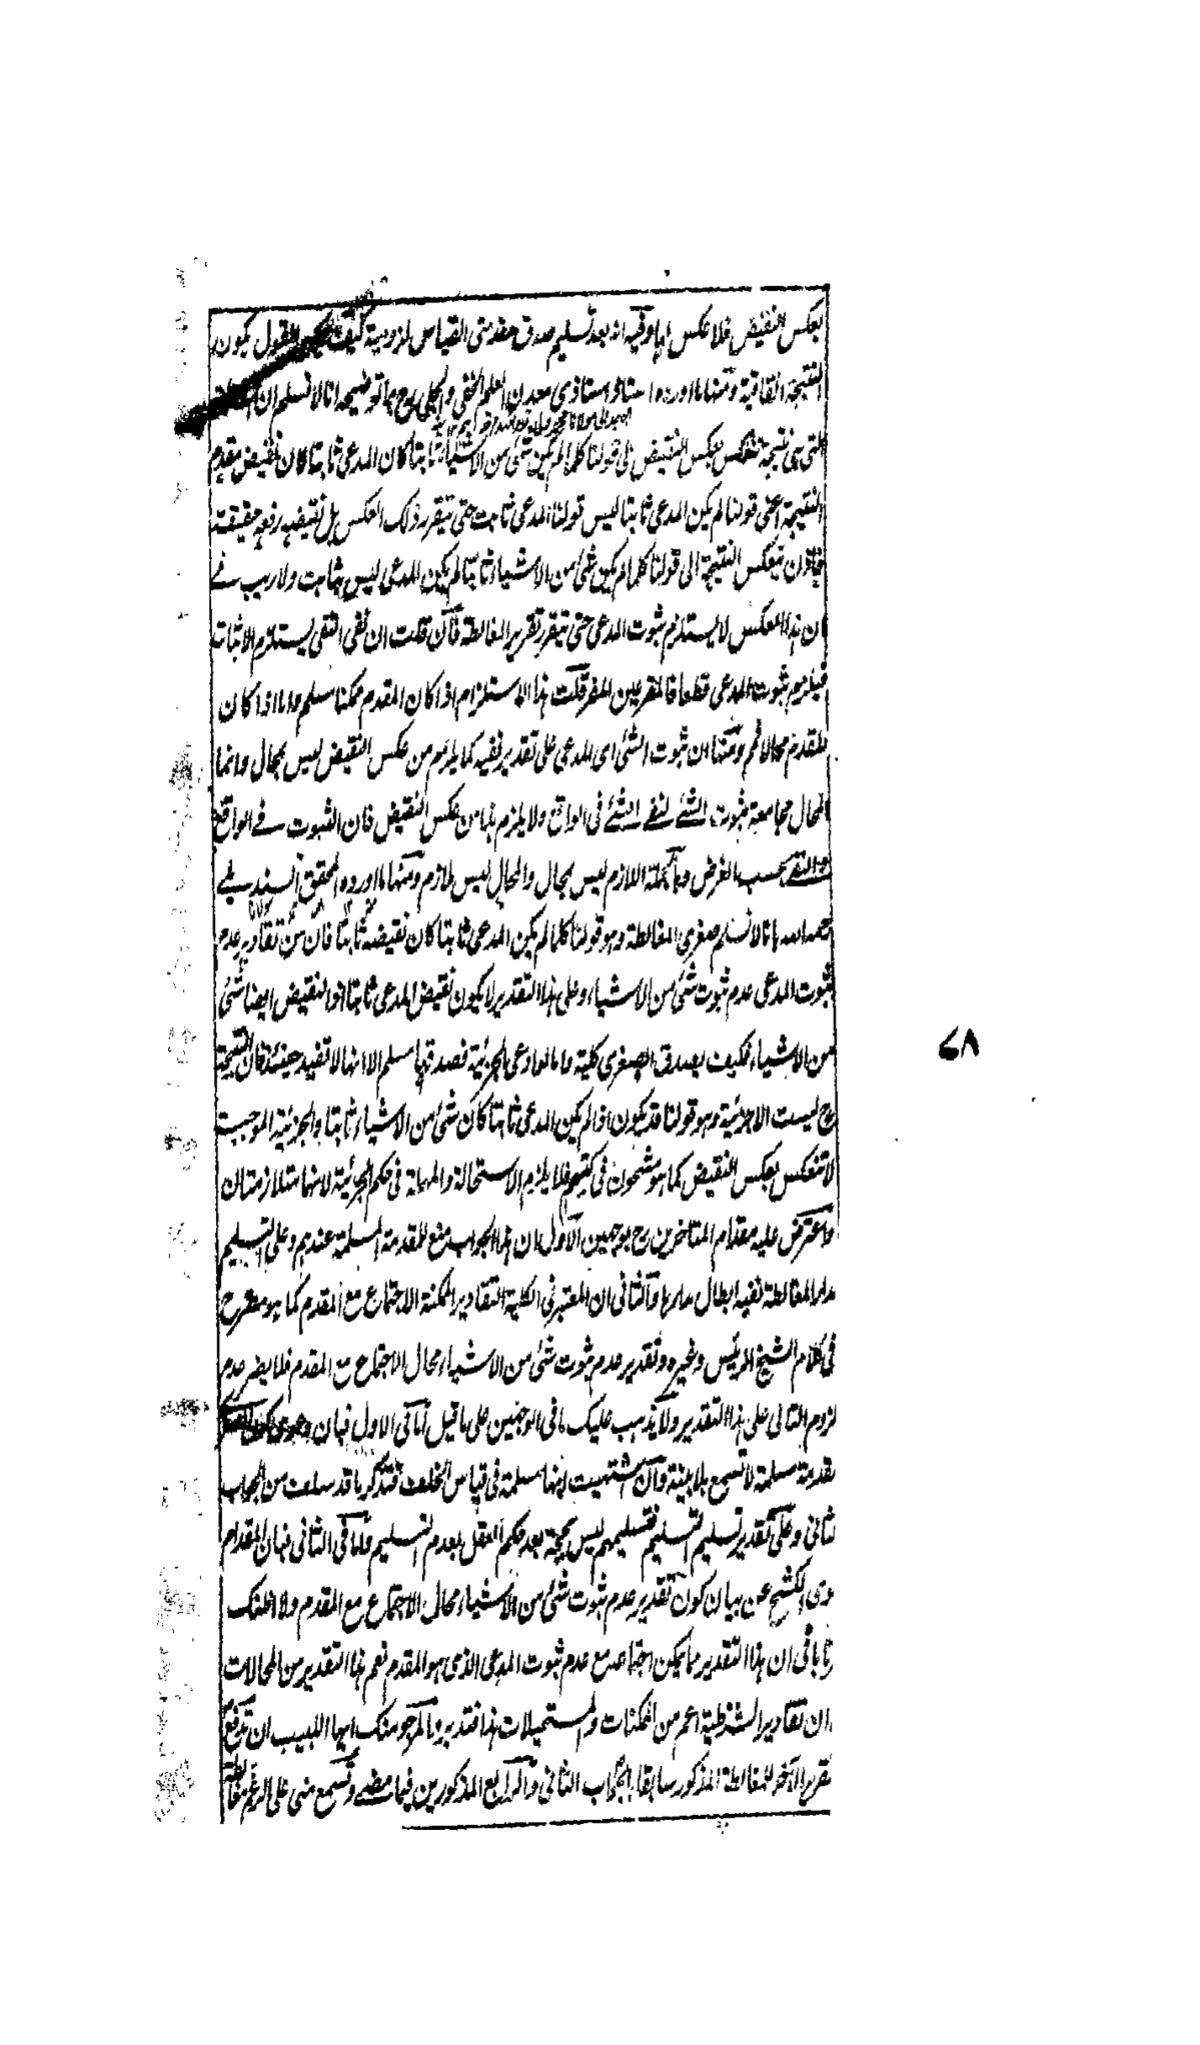 بعكس النقيض فلا عكس لها وفيه انه بعد تسليم صدق مقدمتى القياس لزومية كيف يكون
النتيجة اتفاقية ومنها ما اورده استاذ استاذى معدن العلم الخفى والجلى روح بما توضيحه انا لا نسلم ان
التى هى نتيجة تنعكس بعكس النقيض الى قولنا كلما لم يكن شئ من الاشياء ثابتا كان المدعى ثابتا كان نقيض مقدم
النتيجة اعنى قولنا لم يكن المدعى ثابتا ليس قولنا المدعى ثابت حتى يتقرر ذلك العكس بل نقيضه رفعه حقيقة
فاذن تنعكس النتيجة الى قولنا كلما لم يكن شئ من الاشياء ثابتا لم يكن المدعى ليس بثابت ولا ريب فى
ان هذا العكس لا يستلزم ثبوت المدعى حتى يتقرر تقرير المغالطة فان قلت ان نفى النفى يستلزم الاثبات
فيلزم ثبوت المدعى قطعا فالمقر عين المفر قلت هذا الاستلزام اذا كان المقدم ممكنا مسلم واما اذا كان
المقدم محالا فلا ومنها ان ثبوت الشئ اى المدعى على تقدير نفيه كما يلزم من عكس النقيض ليس بمحال وانما
المحال مجامعة ثبوت الشئ لنفى الشئ فى الواقع ولا يلزم هذا من عكس النقيض فان الثبوت فى الواقع
والنفى بحسب الفرض وبالجملة اللازم ليس بمحال والمحال ليس بلازم ومنها ما اورده المحقق السنديلى
رحمه الله بانا لا نسلم صغرى المغالطة وهو قولنا كلما لم يكن المدعى ثابتا كان نقيضه ثابتا فان من تقادير عدم
ثبوت المدعى عدم ثبوت شئ من الاشياء وعلى هذا التقدير لا يكون نقيض المدعى ثابتا اذ النقيض ايضا شئ
من الاشياء فكيف يصدق الصغرى كلية واما لو ادعى الجزئية فصدقها مسلم الا انها لا تفيد حينئذ فان النتيجة
ح ليست الا جزئية وهو قولنا قد يكون اذا لم يكن المدعى ثابتا كان شئ من الاشياء ثابتا والجزئية الموجبة
لا تنعكس بعكس النقيض كما هو مشحون فى كتبهم فلا يلزم الاستحالة والمهملة فى حكم الجزئية لانها متلازمتان
واعترض عليه مقدام المتاخرين رح بوجهين الاول ان هذا الجواب منع للمقدمة المسلمة عندهم وعلى التسليم
مدار المغالطة ففيه ابطال مدارها والثانى ان المعتبر فى الكلية التقادير الممكنة الاجتماع مع المقدم كما هو مصرح
فى كلام الشيخ الرئيس وغيره وتقدير عدم ثبوت شئ من الاشياء محال الاجتماع مع المقدم فلا يضر عدم
لزوم التالى على هذا التقدير ولا يذهب عليك ما فى الوجهين على ما قيل اما فى الاول فبان دعوى كون
مقدمة مسلمة لا تسمع بلا بينة وان اشتهيت انها مسلمة فى قياس الخلف فتذكر ما قد سلف من الجواب
الثانى وعلى تقدير تسليم التسليم فتسليمهم ليس بحجة بعد حكم العقل بعدم التسليم واما فى الثانى فبان المقدام
طوى الكشح عن بيان كون تقدير عدم ثبوت شئ من الاشياء محال الاجتماع مع المقدم ولا اظنك
ان هذا التقدير ما يمكن اجتماعه مع عدم ثبوت المدعى الذى هو المقدم نعم هذا التقدير من المحالات
ان تقادير الشرطية اعم من الممكنات والمستحيلات هذا فتدبر فالمرجو منك ايها اللبيب ان تدفع
تقرير الآخر للمغالطة المذكور سابقا بالجواب الثانى والرابع المذكورين فيما مضى وتسمع منى على الرغم مغالطة
٦٨